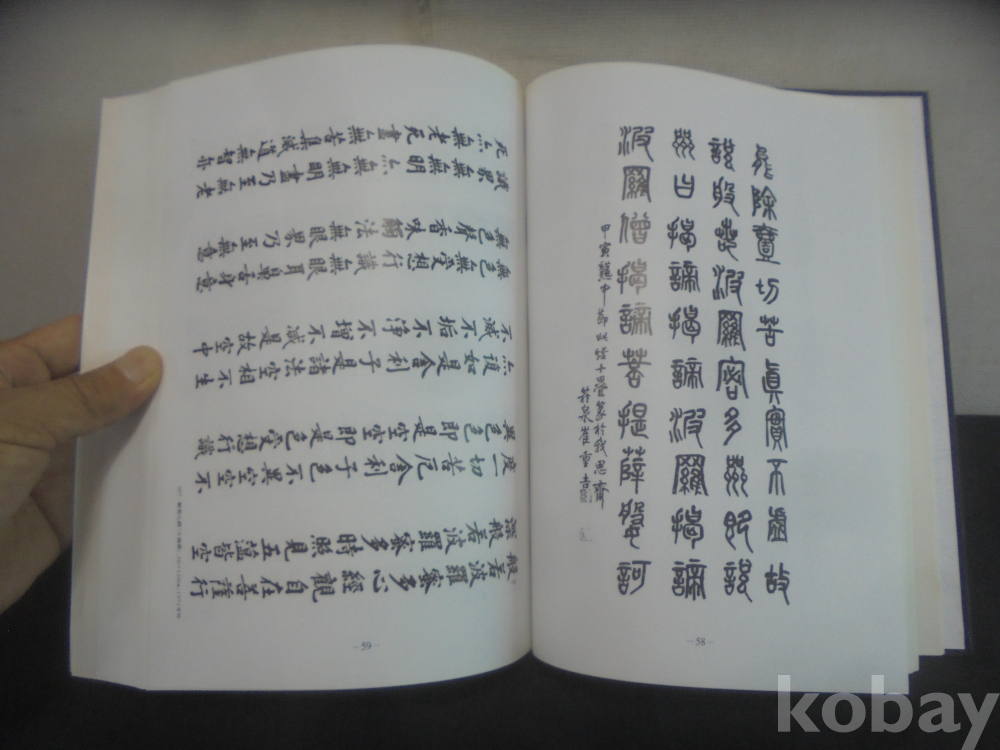 能除壹切苦眞實不虛故
說般若波羅密多呪卽說
呪曰揭諦揭諦波羅揭諦
波羅僧揭諦菩提薩婆訶
甲寅 中節 十疊篆於我思齋
泉崔重吉
－58－
般若波羅密多心經觀自在菩薩行
深般若波羅密多時照見五蘊皆空
度一切苦厄舍利子色不異空空不
異色色卽是空空卽是色受想行識
亦復如是舍利子是諸法空相不生
不滅不垢不淨不增不減是故空中
無色無受想行識無眼耳鼻舌身意
無色聲香味觸法無眼界乃至無意
識界無無明亦無無明盡乃至無老
死亦無老死盡無苦集滅道無智亦
－59－
kobay